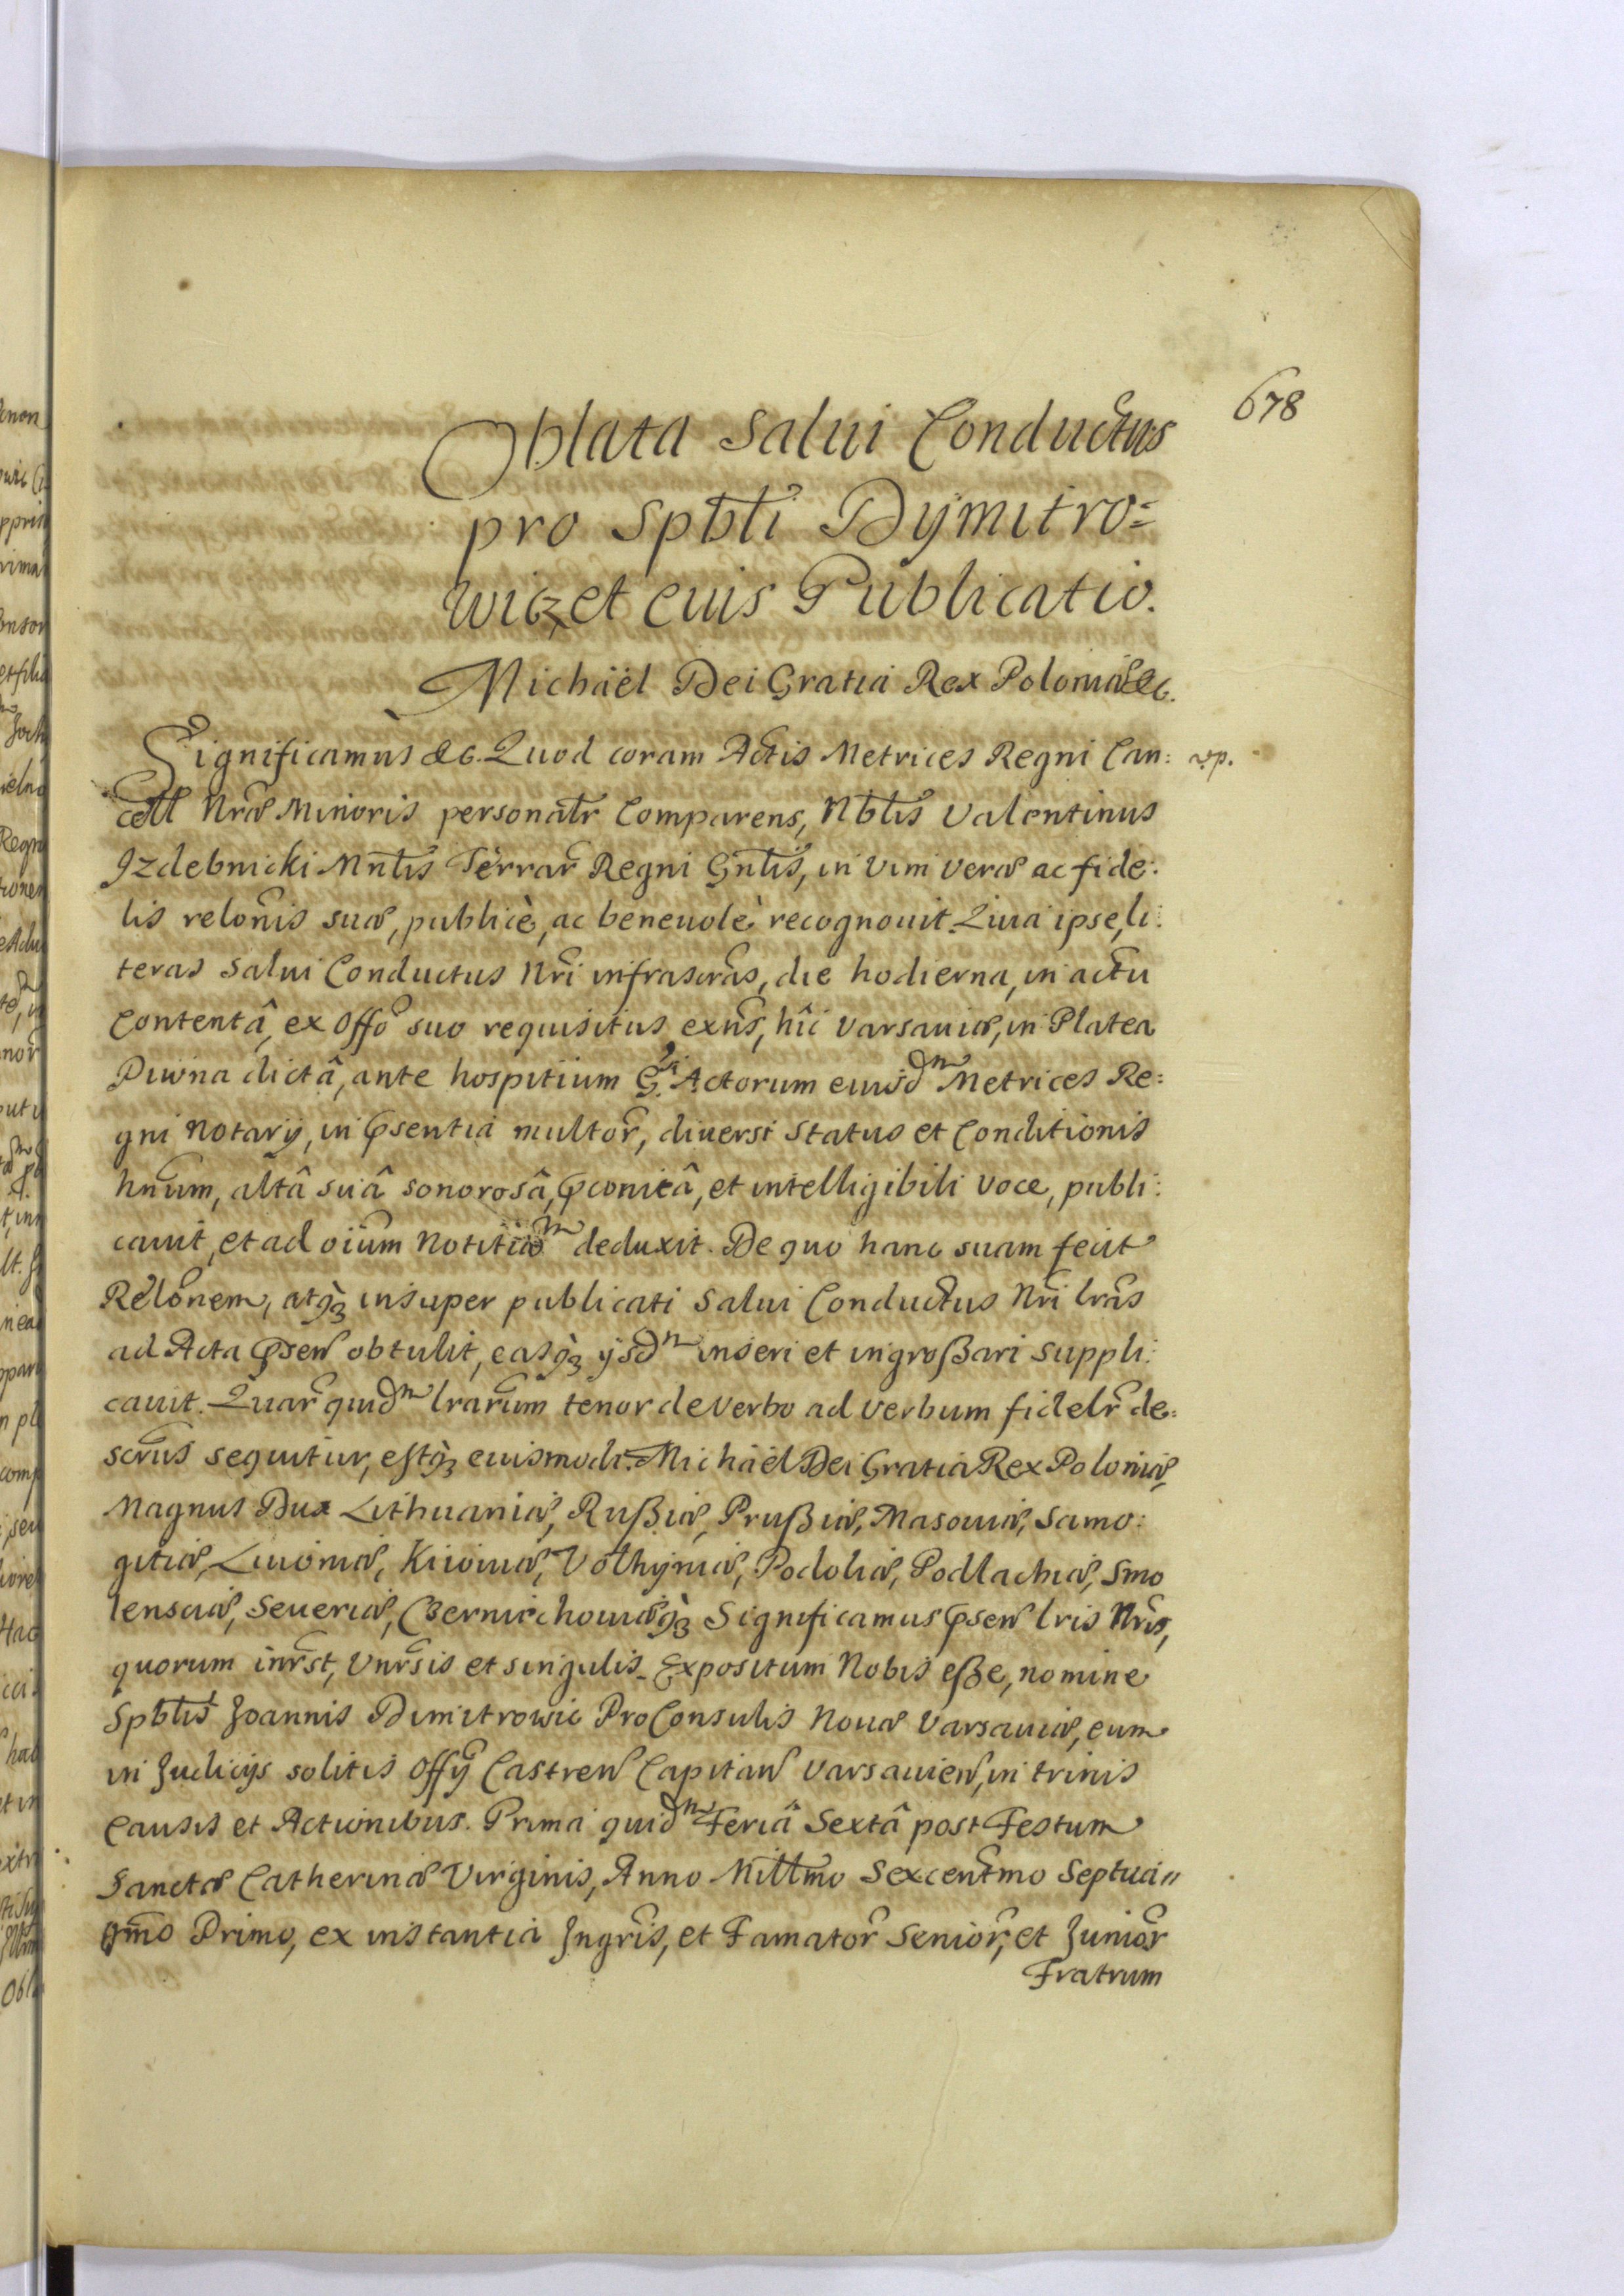 678
Oblata Salui Conductus
pro Spbłi Dÿmitro=
wicz et eius Publicatio.
Michaël Dei Gratia Rex Poloniæ &c.
Significamus &c. Quod coram Actis Metrices Regni Can: vp.
cell Nræ Minoris personalr Comparens, Nbtis Valentinus
Izdebnicki Mntis Terrar Regni Gntis, in Vim veræ ac fide:
lis relonis suæ, publicè, ac beneuolè recognouit. Quia ipse, li:
teras Salui Conductus Nri infrascras, die hodierna, in actu
Contentâ, ex Offo suo requisitus exns, hîc Varsauiæ, in Platea
Piwna dictâ, ante hospitium G. Actorum eiusdm Metrices Re:
gni Notarÿ, in psentia multor, diuersi Status et Conditionis
hnum, altâ suâ sonorosâ, pconicâ, et intelligibili voce, publi:
cauit, et ad oium Notitiam deduxit. De quo hanc suam fecit
Relonem, atqꝫ insuper publicati Salui Conductus Nri lras
ad Acta psen obtulit, easqꝫ ÿsdm inseri et ingroßari suppli:
cauit. Quar quidm lrarum tenor de Verbo ad Verbum fidelr de:
scrus sequitur, estqꝫ eiusmodi. Michaël Dei Gratia Rex Poloniæ,
Magnus Dux Lithuaniæ, Rußiæ, Prußiæ, Masouiæ, Samo:
gitiæ, Liuoniæ, Kiiouiæ, Volhÿniæ, Podoliæ, Podlachiæ, Smo
lensciæ, Seueriæ, Czernichouiæqꝫ Significamus psen lris Nris,
quorum inrst, Vnrsis et singulis. Expositum Nobis eße, nomine
Spbtis Joannis Dimitrowic ProConsulis Nouæ Varsauiæ, eum
in Judicijs solitis Offÿ Castren Capitan Varsauien, in trinis
Causis et Actionibus. Prima quidm Feriâ Sextâ post Festum
Sanctæ Catherinæ Virginis, Anno Millmo Sexcentmo Septua=
gmo Primo, ex instantia Ingris, et Famator Senior, et Junior
Fratrum